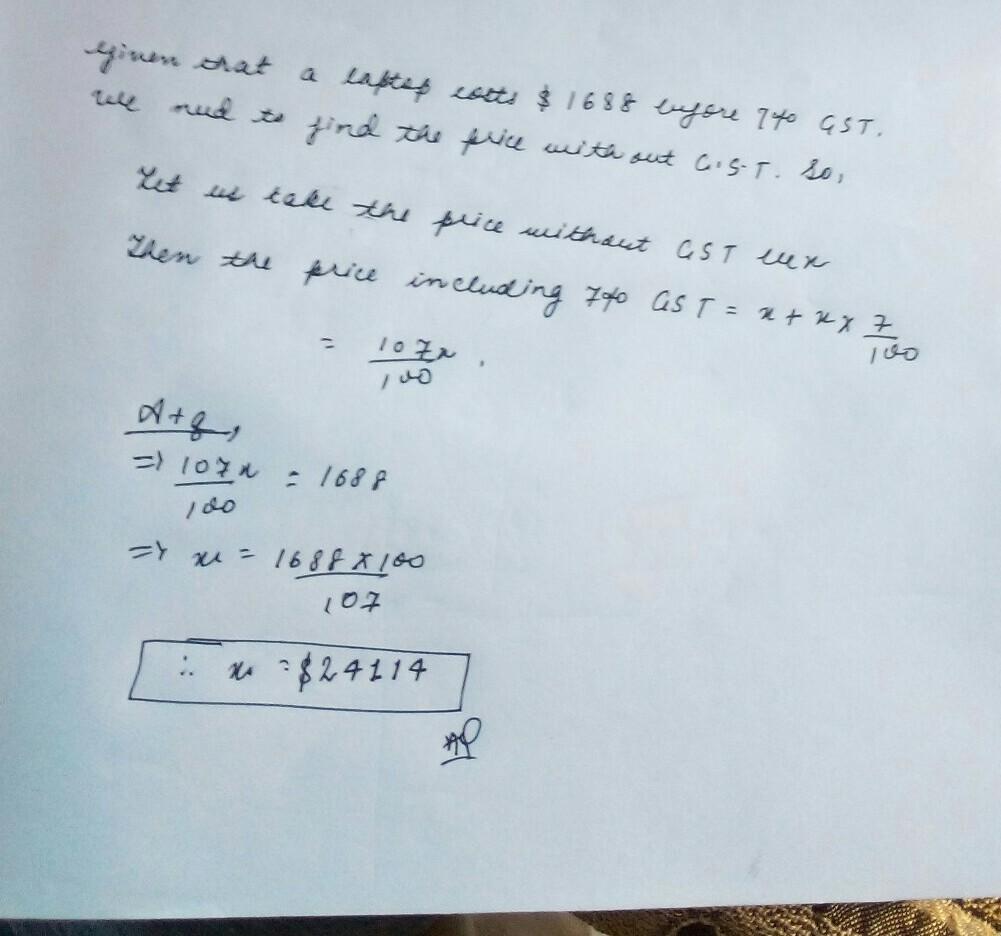 Given that a laptop costs $ 1688 before 7% GST.
We need to find the price with out G.S.T. So,
Let us take the price without GST be x
Then the price including 7% GST = x + x × 7/100
= 107x/100.
Atq,
=> 107x/100 = 1688
=> x = 1688 × 100/107
∴ x = $24114